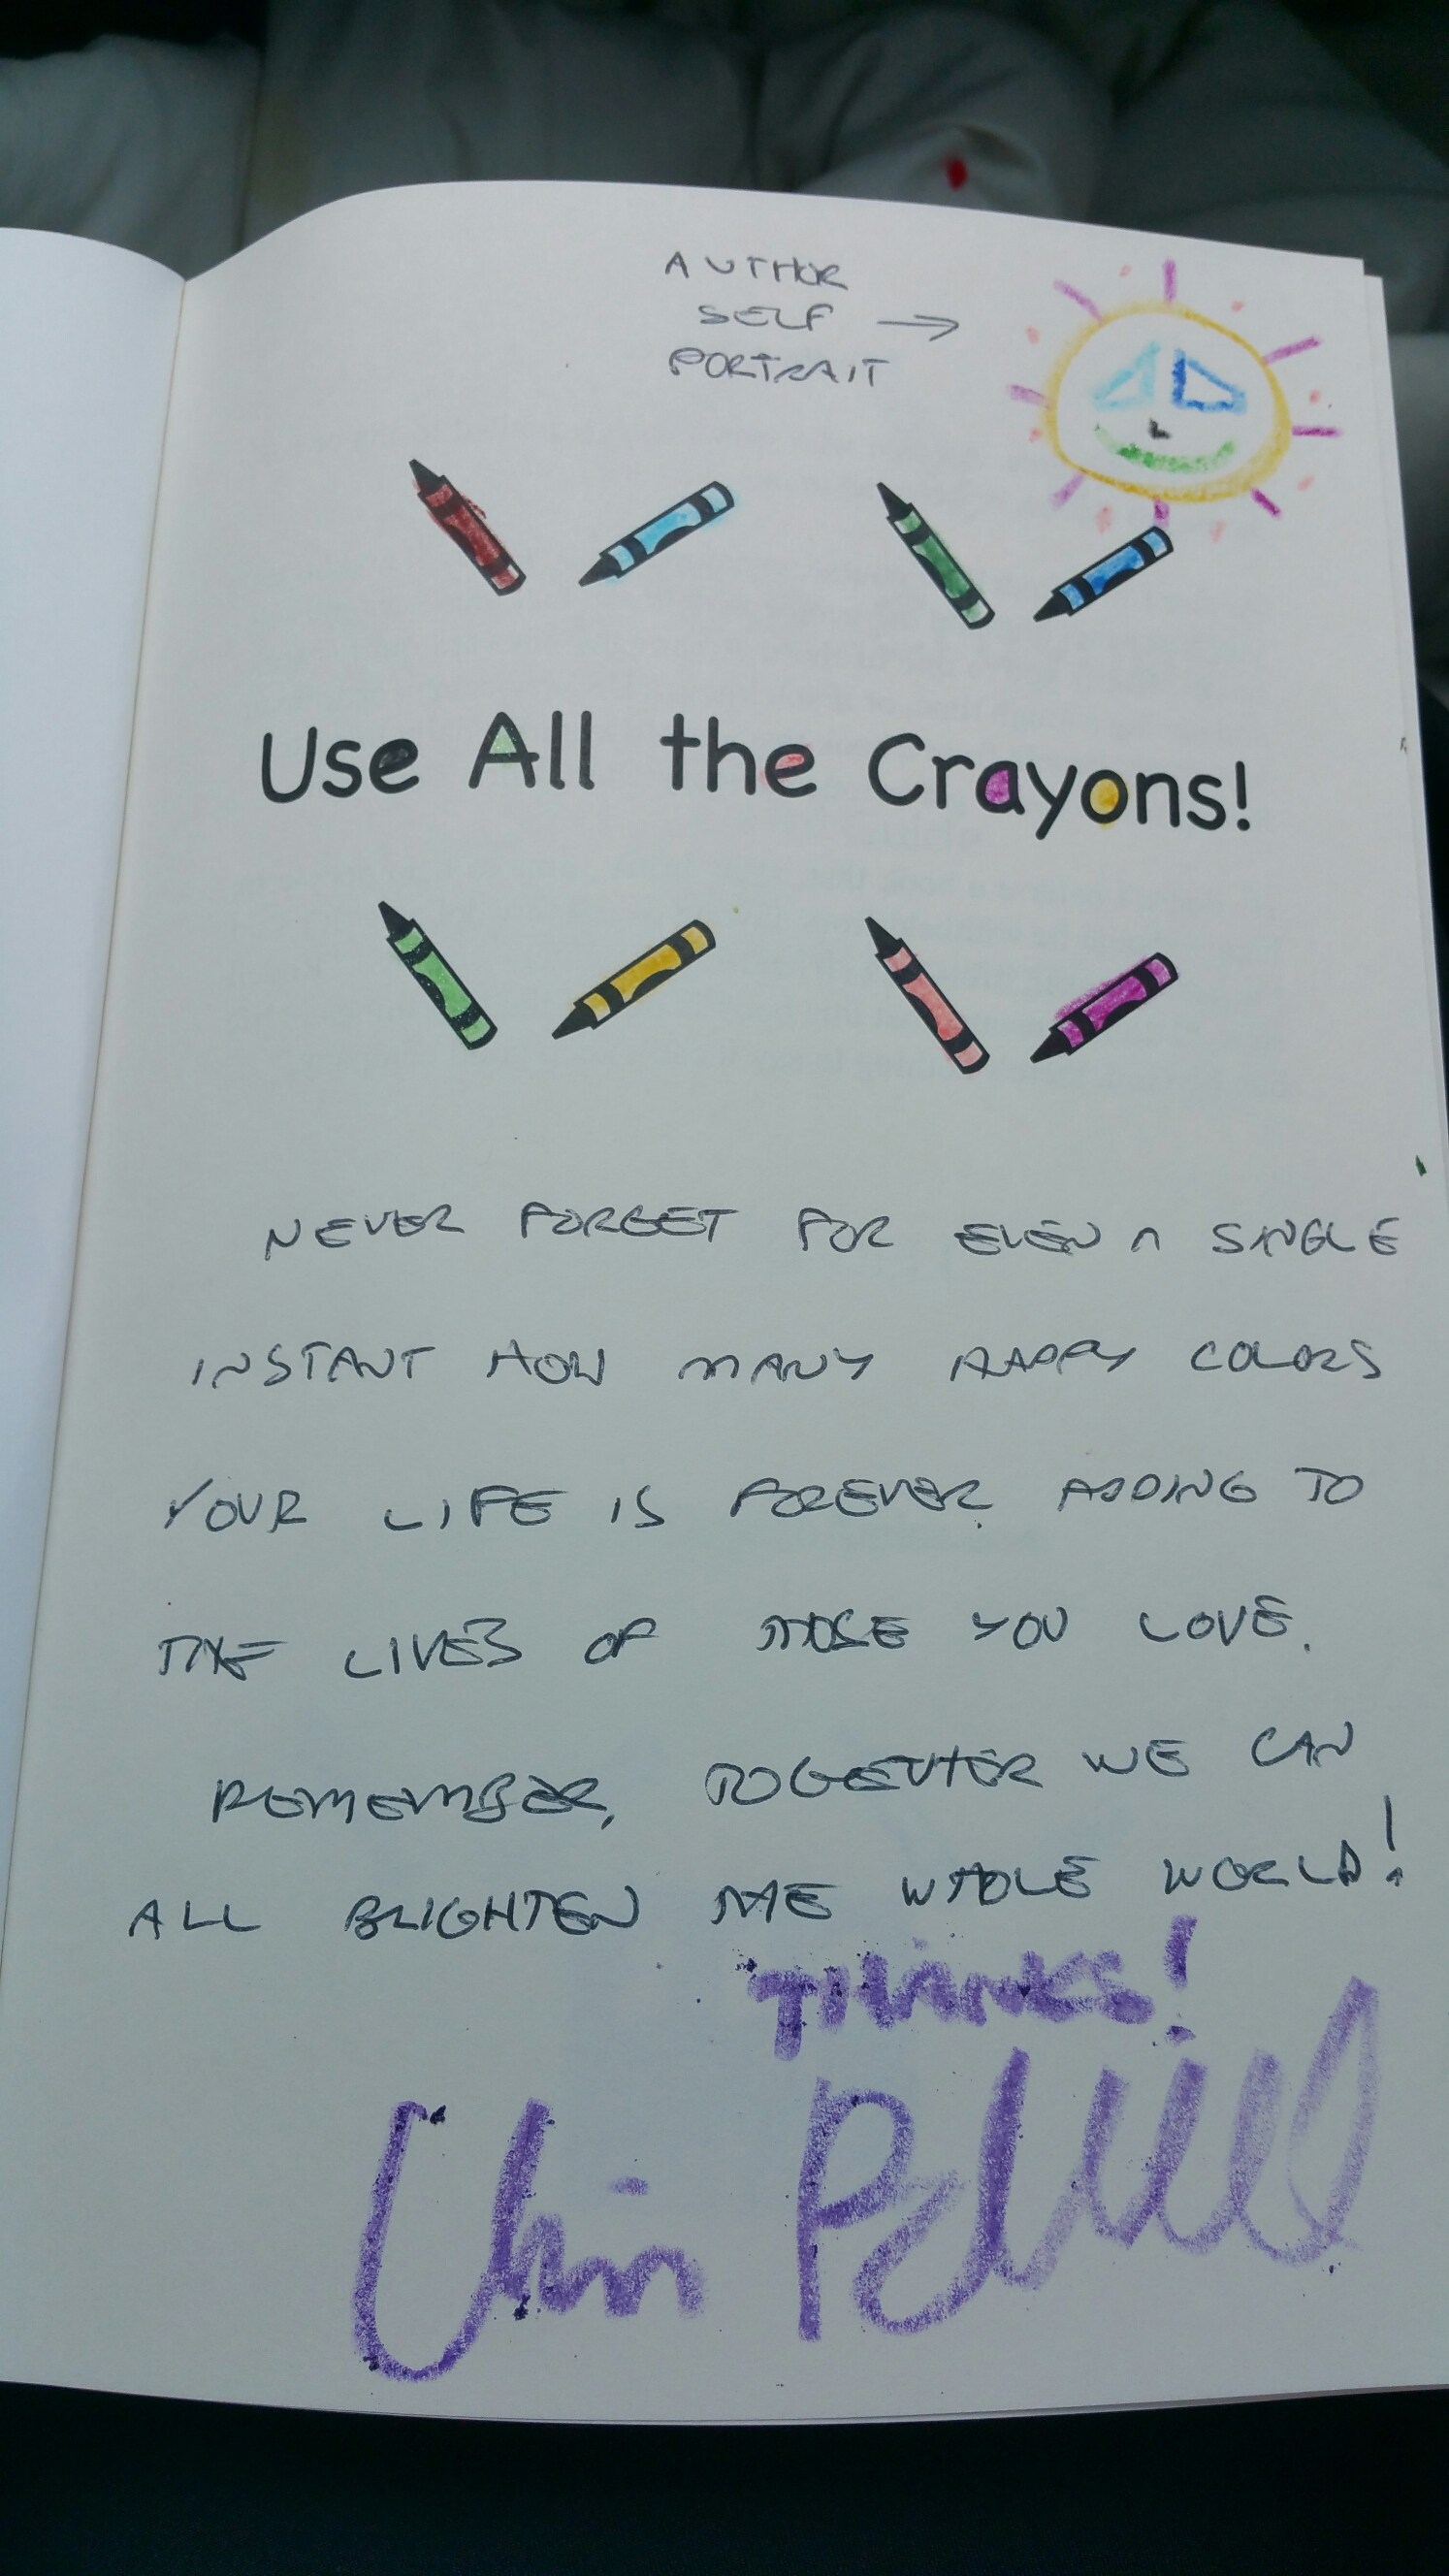 AUTHOR
SELF →
PORTRAIT
Use All the Crayons!
NEVER FORGET FOR EVEN A SINGLE
INSTANT HOW MANY HAPPY COLORS
YOUR LIFE IS FOREVER ADDING TO
THE LIVES OF THOSE YOU LOVE.
REMEMBER, TOGETHER WE CAN
ALL BRIGHTEN THE WHOLE WORLD!
THANKS!
Chris